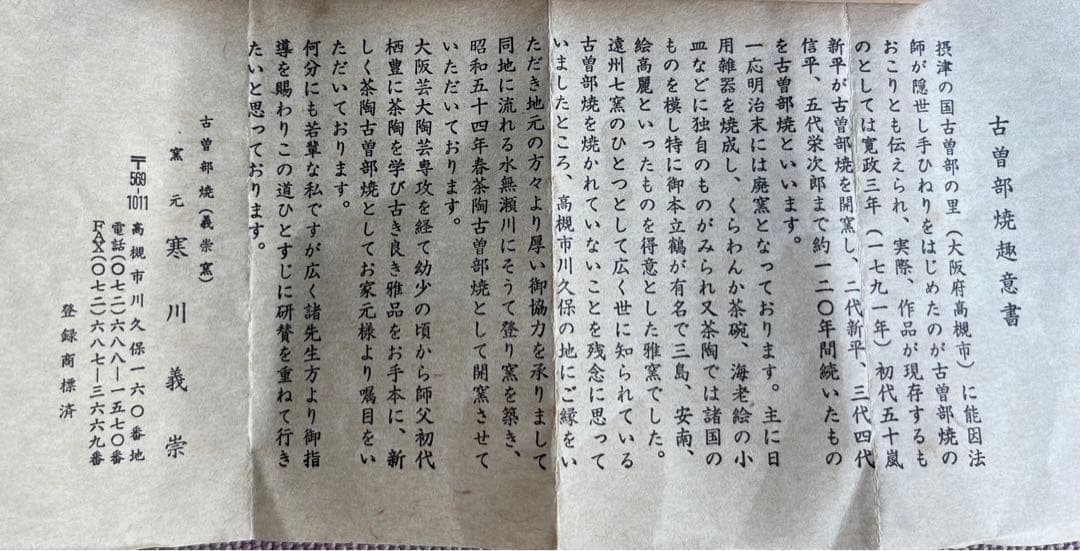 古曽部焼趣意書
摂津の国古曽部の里（大阪府高槻市）に能因法
師が隠世し手ひねりをはじめたのが古曽部焼の
おこりとも伝えられ、実際、作品が現存するも
のとしては寛政三年（一七九一年）初代五十嵐
新平が古曽部焼を開窯し、二代新平、三代四代
信平、五代栄次郎まで約一二〇年間続いたもの
を古曽部焼といいます。
一応明治末には廃窯となっております。主に日
用雑器を焼成し、くらわんか茶碗、海老絵の小
皿などに独自のものがみられ又茶陶では諸国の
ものを模し特に御本立鶴が有名で三島、安南、
絵高麗といったものを得意とした雅窯でした。
遠州七窯のひとつとして広く世に知られている
古曽部焼を焼かれていないことを残念に思って
いましたところ、高槻市川久保の地にご縁をい
ただき地元の方々より厚い御協力を承りまして
同地に流れる水無瀬川にそうて登り窯を築き、
昭和五十四年春茶陶古曽部焼として開窯させて
いただいております。
大阪芸大陶芸専攻を経て幼少の頃から師父初代
栖豊に茶陶を学び古き良き雅品をお手本に、新
しく茶陶古曽部焼としてお家元様より嘱目をい
ただいております。
何分にも若輩な私ですが広く諸先生方より御指
導を賜わりこの道ひとすじに研賛を重ねて行き
たいと思っております。
古曽部焼（義崇窯）
窯元 寒川義崇
〒569-1011 高槻市川久保一六〇番地
電話（〇七二）六八八―一五七〇番
FAX（〇七二）六八七―三六六九番
登録商標済